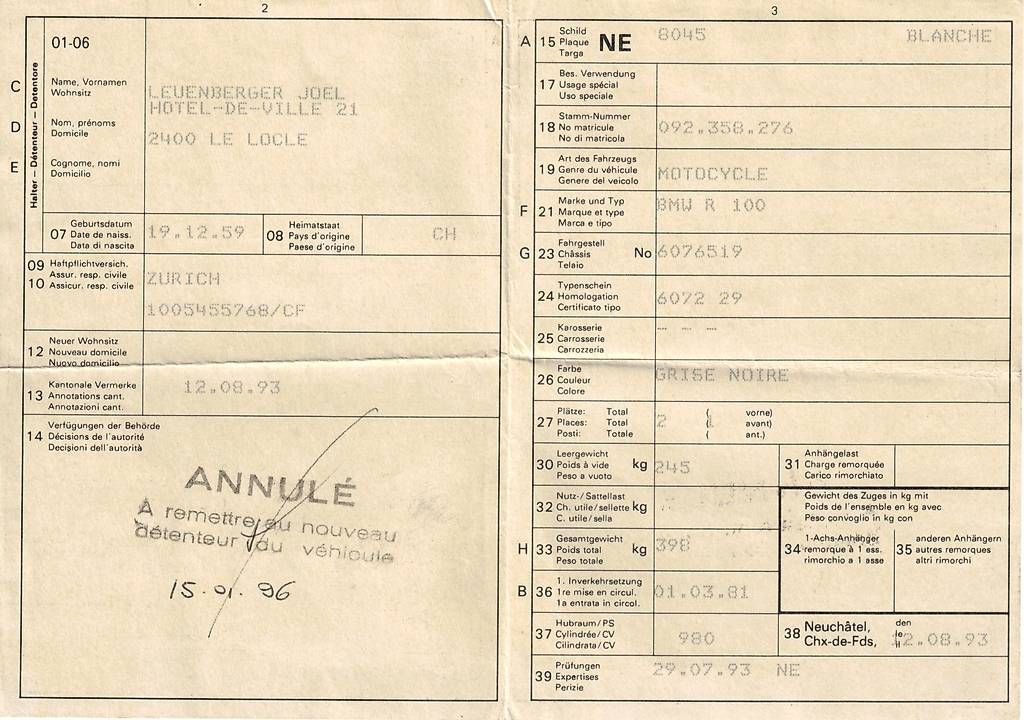 2
01-06
C
D
E
Halter – Détenteur – Detentore
Name, Vornamen
Wohnsitz
Nom, prénoms
Domicile
Cognome, nomi
Domicilio
LEUENBERGER JOEL
HOTEL-DE-VILLE 21
2400 LE LOCLE
07 Geburtsdatum
Date de naiss.
Data di nascita
19.12.59
08 Heimatstaat
Pays d'origine
Paese d'origine
CH
09 Haftpflichtversich.
10 Assur. resp. civile
Assicur. resp. civile
ZURICH
1005455768/CF
12 Neuer Wohnsitz
Nouveau domicile
Nuovo domicilio
13 Kantonale Vermerke
Annotations cant.
Annotazioni cant.
12.08.93
14 Verfügungen der Behörde
Décisions de l'autorité
Decisioni dell'autorità
ANNULÉ
À remettre au nouveau
détenteur du véhicule
15.01.96
3
A 15 Schild
Plaque
Targa
NE 8045 BLANCHE
17 Bes. Verwendung
Usage spécial
Uso speciale
18 Stamm-Nummer
No matricule
No di matricola
092.358.276
19 Art des Fahrzeugs
Genre du véhicule
Genere del veicolo
MOTOCYCLE
F 21 Marke und Typ
Marque et type
Marca e tipo
BMW R 100
G 23 Fahrgestell
Châssis No
Telaio
6076519
24 Typenschein
Homologation
Certificato tipo
6072 29
25 Karosserie
Carrosserie
Carrozzeria
26 Farbe
Couleur
Colore
GRISE NOIRE
27 Plätze: Total ( vorne)
Places: Total ( avant)
Posti: Totale ( ant.)
2 1
30 Leergewicht
Poids à vide kg
Peso a vuoto
245
31 Anhängelast
Charge remorquée
Carico rimorchiato
32 Nutz-/Sattellast
Ch. utile/sellette kg
C. utile/sella
Gewicht des Zuges in kg mit
Poids de l'ensemble en kg avec
Peso convoglio in kg con
H 33 Gesamtgewicht
Poids total kg
Peso totale
398
34 1-Achs-Anhänger
remorque à 1 ess.
rimorchio a 1 asse
35 anderen Anhängern
autres remorques
altri rimorchi
B 36 1. Inverkehrsetzung
1re mise en circul.
1a entrata in circol.
01.03.81
37 Hubraum/PS
Cylindrée/CV
Cilindrata/CV
980
38 Neuchâtel,
Chx-de-Fds,
den
le
il
12.08.93
39 Prüfungen
Expertises
Perizie
29.07.93 NE